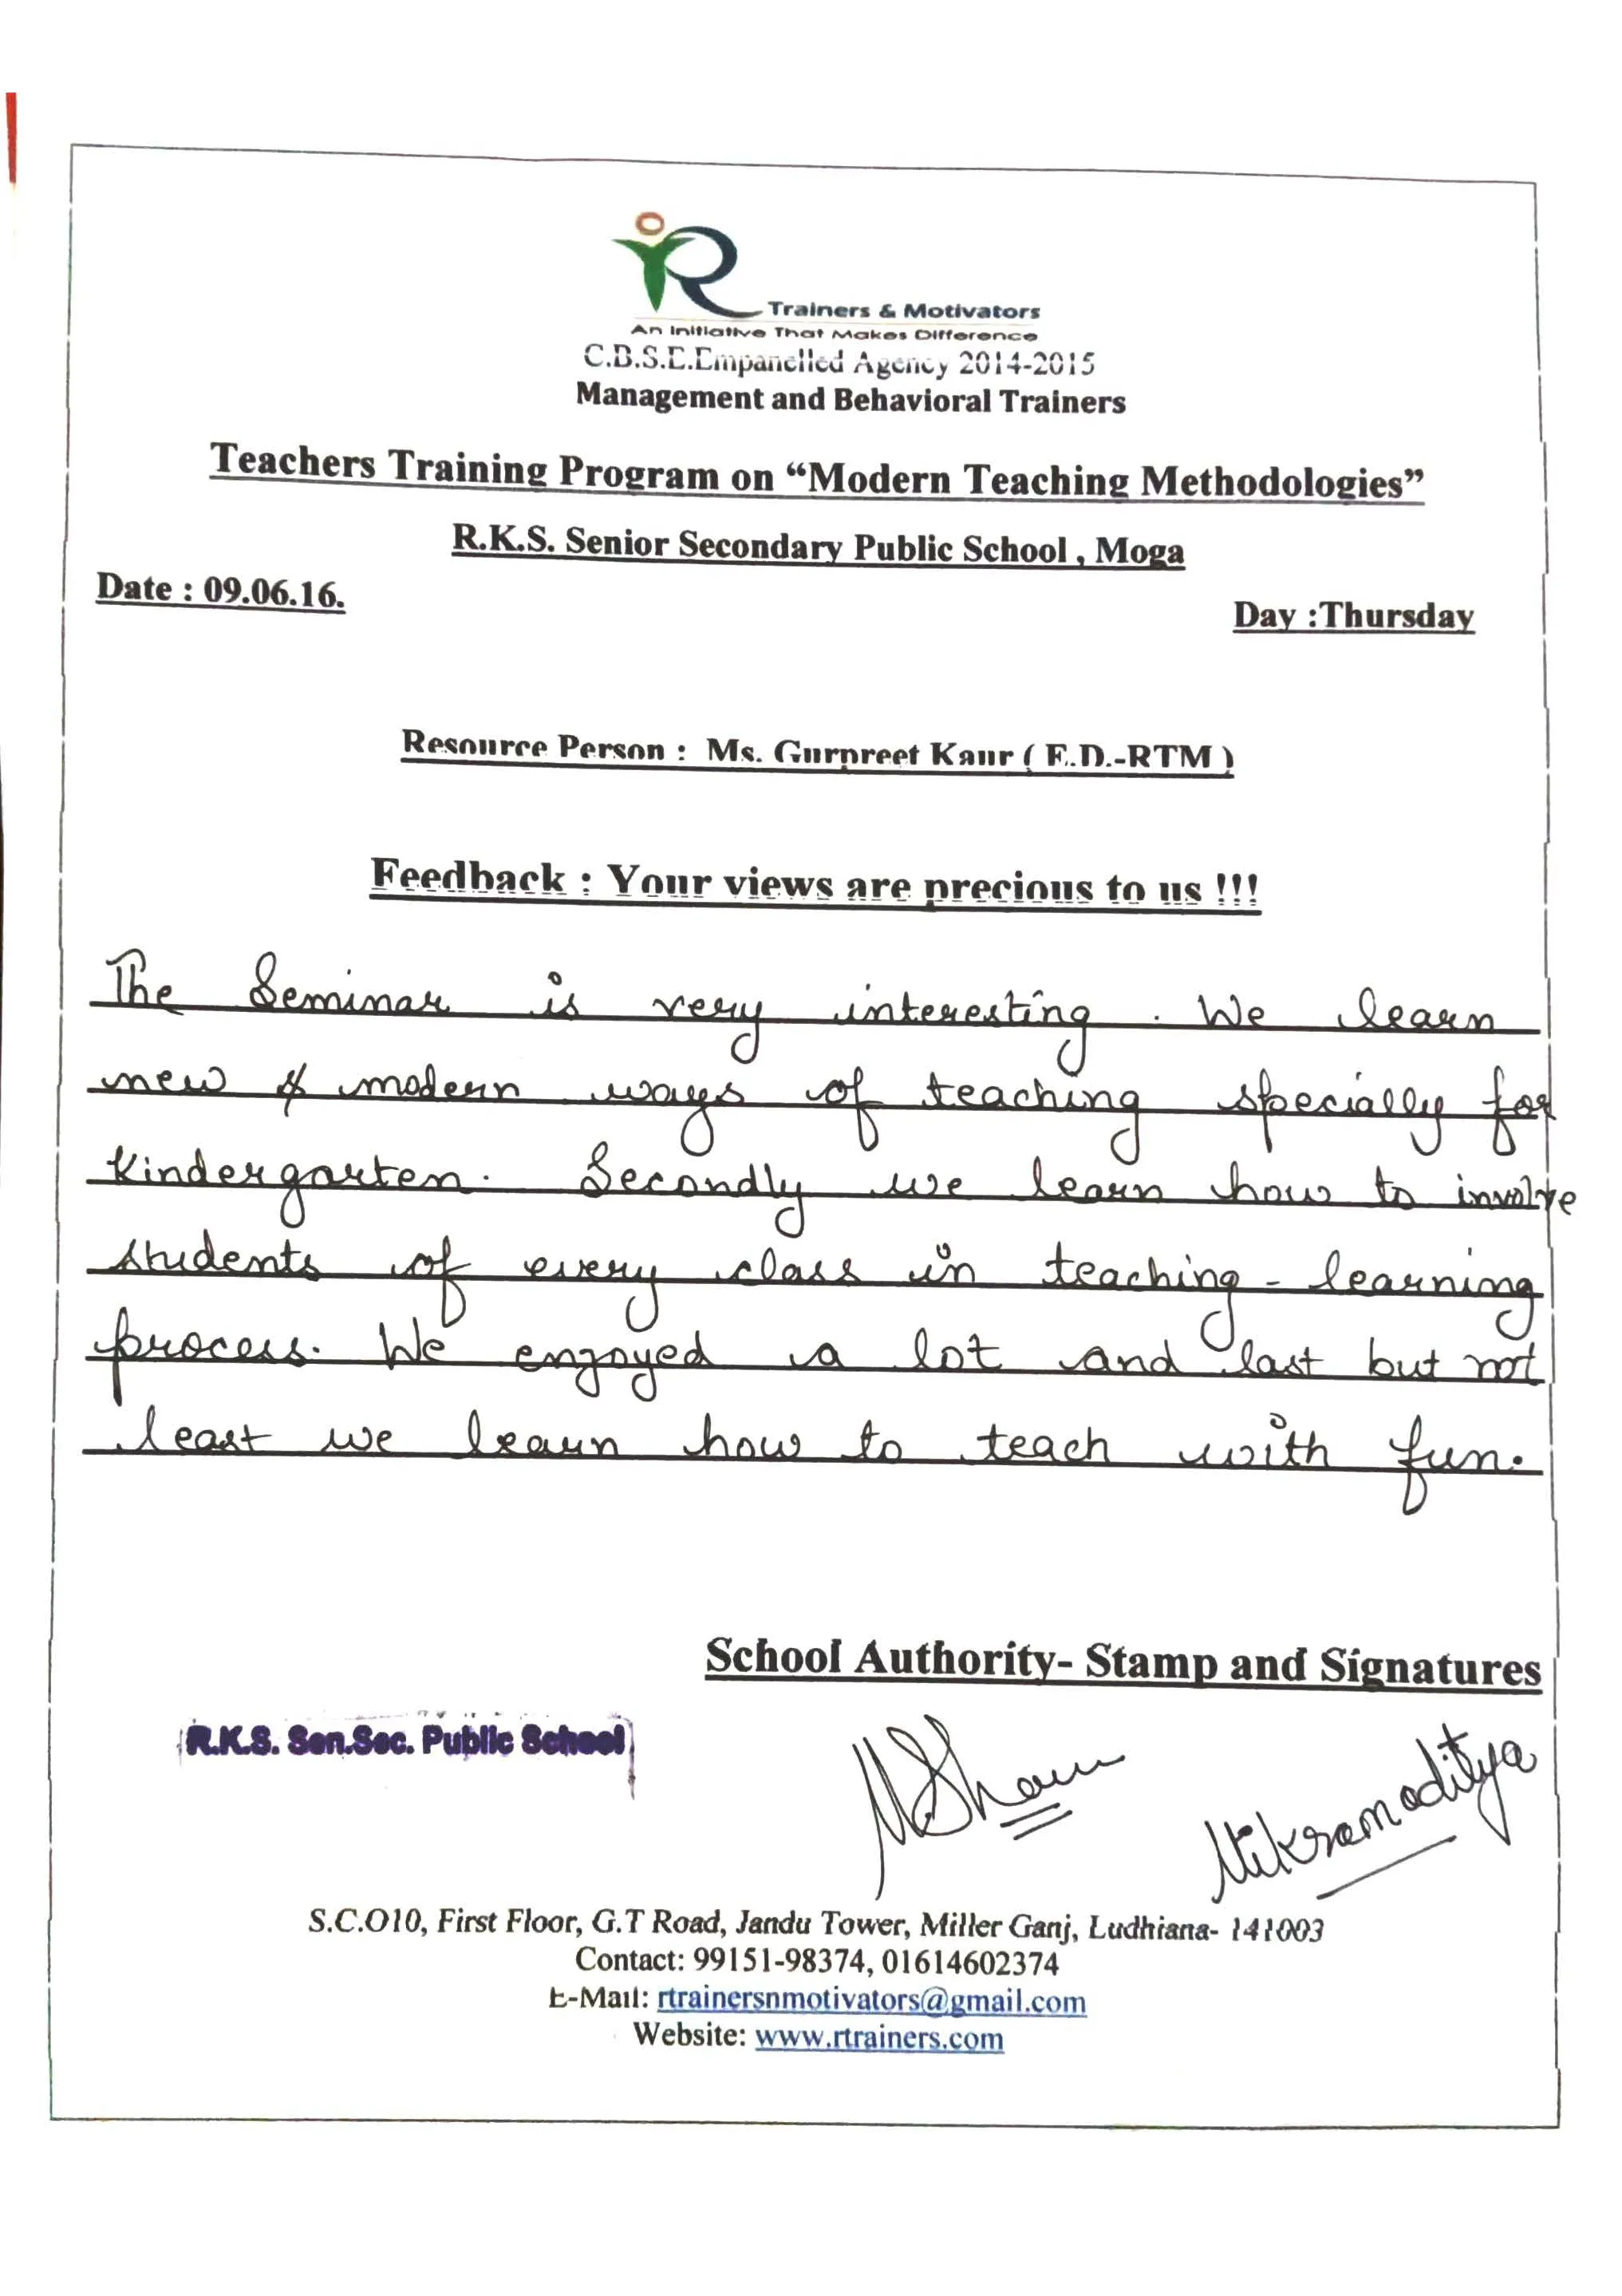 R
Trainers & Motivators
An Initiative That Makes Difference
C.B.S.E.Empanelled Agency 2014-2015
Management and Behavioral Trainers
Teachers Training Program on “Modern Teaching Methodologies”
R.K.S. Senior Secondary Public School , Moga
Date : 09.06.16.
Day :Thursday
Resource Person : Ms. Gurpreet Kaur ( E.D.-RTM )
Feedback : Your views are precious to us !!!
The Seminar is very interesting. We learn
new & modern ways of teaching specially for
Kindergarten. Secondly we learn how to involve
students of every class in teaching - learning
process. We enjoyed a lot and last but not
least we learn how to teach with fun.
School Authority- Stamp and Signatures
R.K.S. Sen.Sec. Public School
Vikramaditya
S.C.O10, First Floor, G.T Road, Jandu Tower, Miller Ganj, Ludhiana- 141003
Contact: 99151-98374, 01614602374
E-Mail: rtrainersnmotivators@gmail.com
Website: www.rtrainers.com